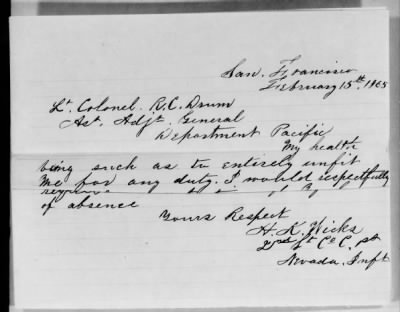 San. Francisco
February 15th. 1865
Lt. Colonel. R. C. Drum
Ast. Adjt. General
Department Pacific
My health
being such as to entirely unfit
me for any duty. I would respectfully
of absence
Yours Respect
H. K. Hicks
2nd Lt Co C. 1st
Nevada. Inft